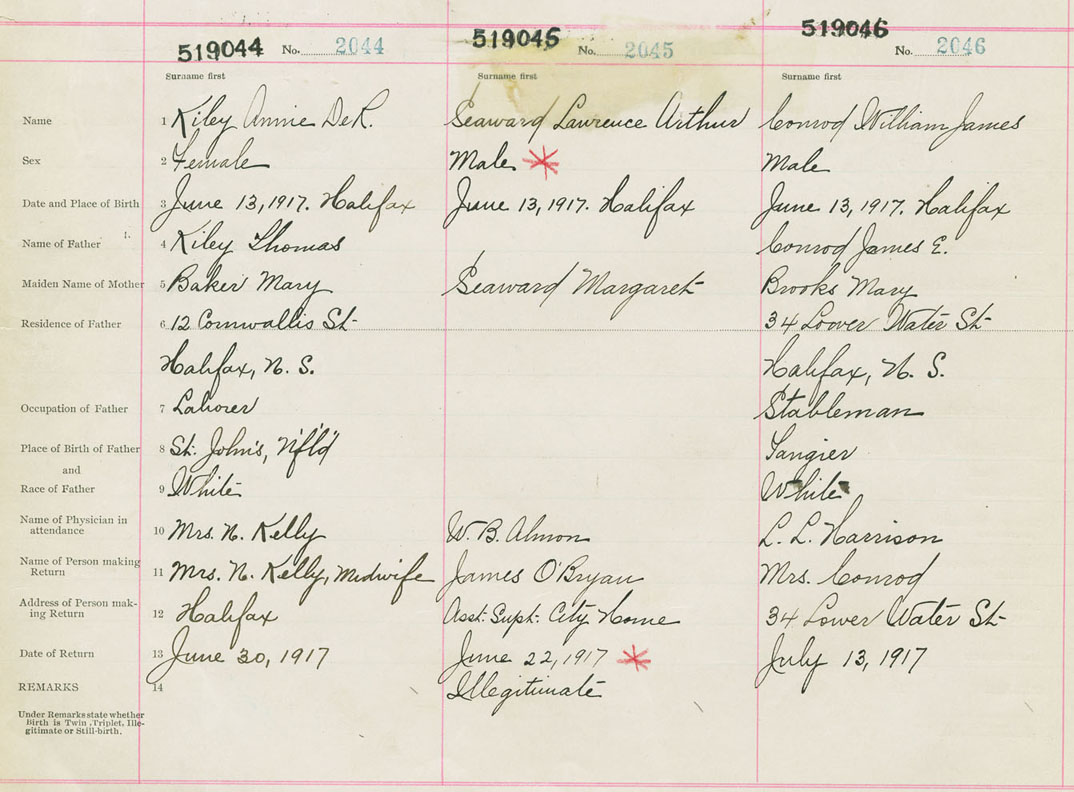 519044 No. 2044 519045 No. 2045 519046 No. 2046
Surname first Surname first Surname first
Name 1 Kiley Annie DeR. Seaward Lawrence Arthur Conrod William James
Sex 2 Female Male Male
Date and Place of Birth 3 June 13, 1917. Halifax June 13, 1917. Halifax June 13, 1917. Halifax
Name of Father 4 Kiley Thomas Conrod James E.
Maiden Name of Mother 5 Baker Mary Seaward Margaret Brooks Mary
Residence of Father 6 12 Cornwallis St. 34 Lower Water St.
Halifax, N. S. Halifax, N. S.
Occupation of Father 7 Laborer Stableman
Place of Birth of Father 8 St. John's, Nf'l'd Tangier
and
Race of Father 9 White White
Name of Physician in
attendance 10 Mrs. N. Kelly W. B. Almon L. L. Harrison
Name of Person making
Return 11 Mrs. N. Kelly, Midwife James O'Bryan Mrs. Conrod
Address of Person mak-
ing Return 12 Halifax Asst. Supt. City Home 34 Lower Water St.
Date of Return 13 June 30, 1917 June 22, 1917 July 13, 1917
REMARKS 14 Illegitimate
Under Remarks state whether
Birth is Twin, Triplet, Ille-
gitimate or Still-birth.